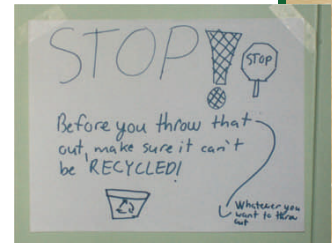 STOP!
STOP
Before you throw that
out, make sure it can't
be RECYCLED!
Whatever you
want to throw
out